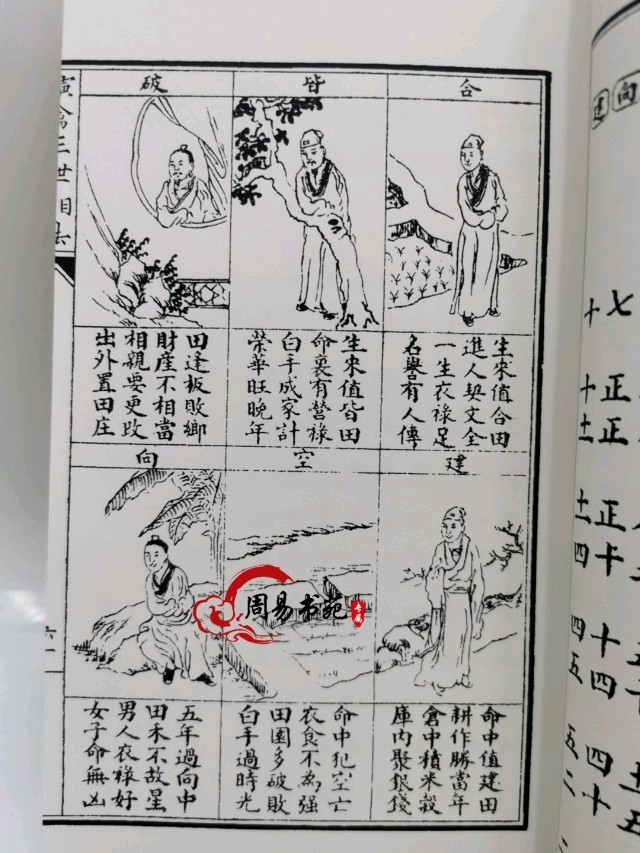 合
生來值合田
進人契文全
一生衣祿足
名譽有人傳
皆
生來值皆田
命裏有營祿
白手成家計
榮華旺晚年
破
田逢板敗鄉
財產不相當
相親要更改
出外置田庄
建
命中值建田
耕作勝當年
倉中積米穀
庫内聚銀錢
空
命中犯空亡
衣食不為强
田園多破敗
白手過時光
向
五年過向中
田禾不故星
男人衣祿好
女子命無凶
禽三世相法
周易书苑
专属
向
七
十
正
十
正
土
正
土
十
四
十
四
四
五
四
五
十
二